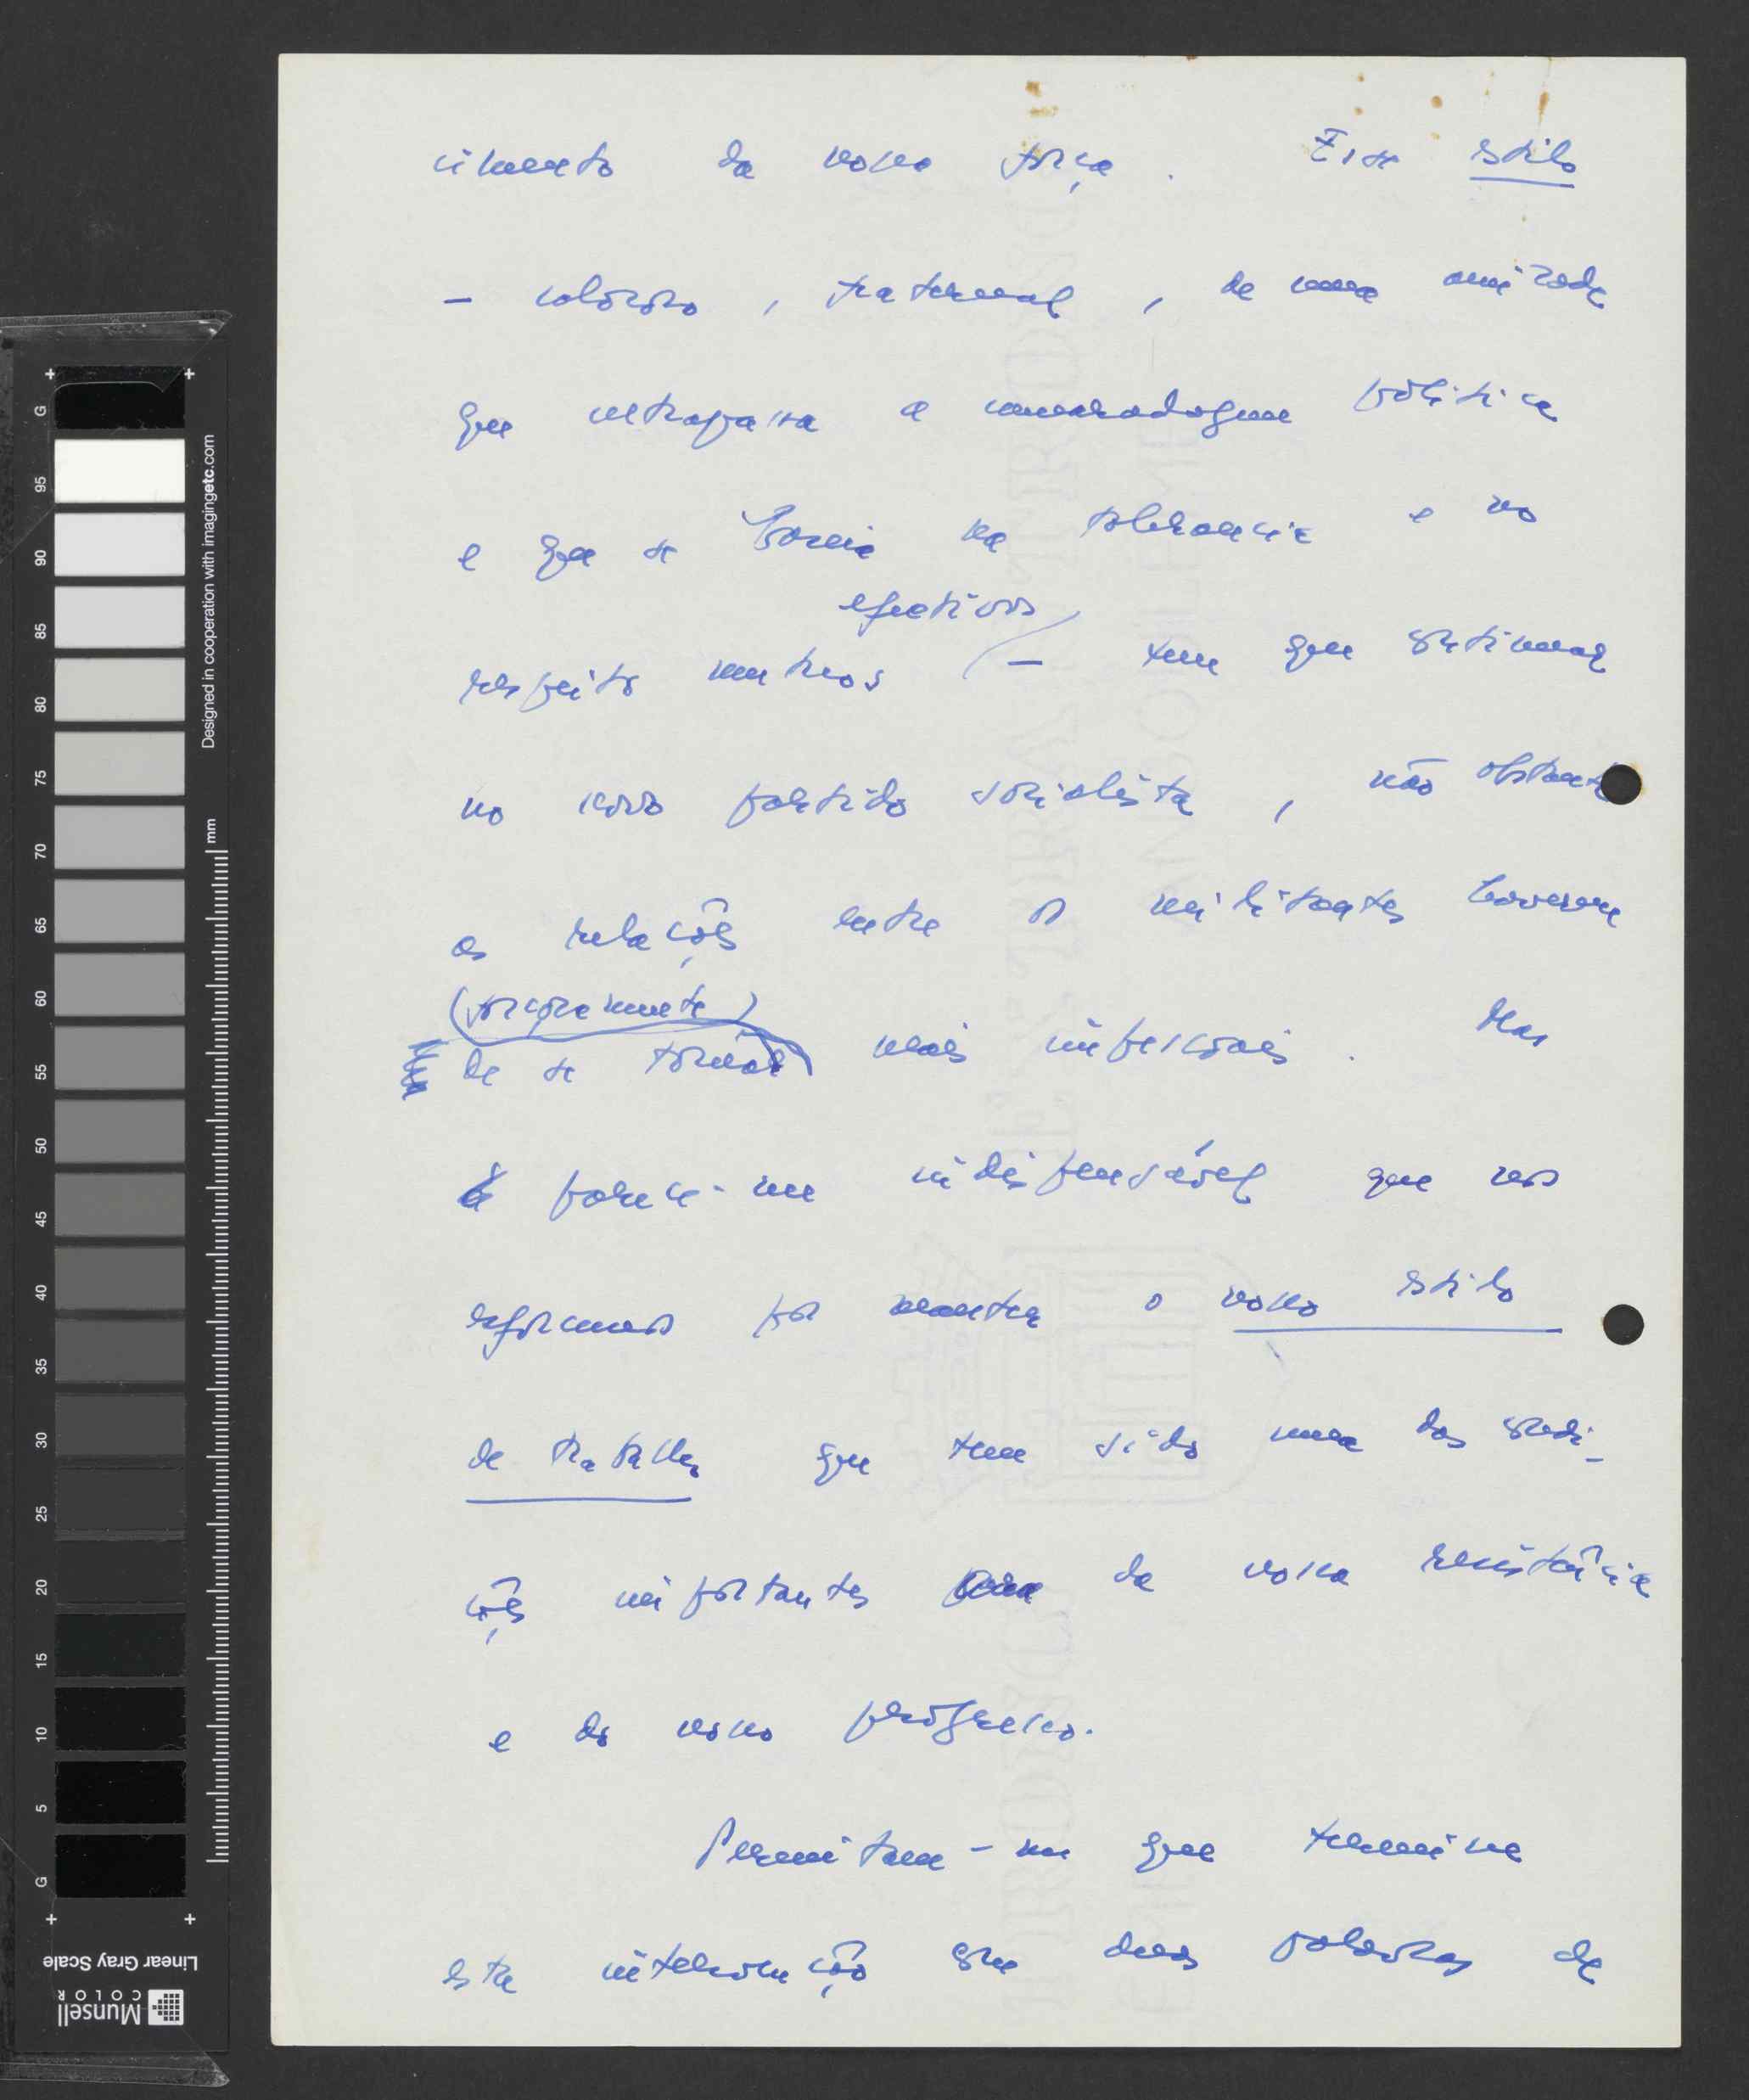 cimento da nossa força. Esse estilo
— caloroso, fraternal, de uma amizade
que ultrapassa a camaradagem política
e que se baseia na tolerancia e no
efectivos
respeito mutuos — tem que continuar
no novo partido socialista, não obstante
as relações entre os militantes haverem
(forçosamente)
de se tornar mais impessoais. Mas
parece-me indispensável que nos
esforcemos por manter o nosso estilo
de trabalho que tem sido uma das condi-
ções importantes da nossa resistência
e do nosso progresso.
Permitam-me que termine
esta intervenção com duas palavras de
Designed in cooperation with imagingetc.com
mm
G 95 90 85 80 75 70 65 60 55 50 45 40 35 30 25 20 15 10 5 G
Linear Gray Scale
Munsell
COLOR